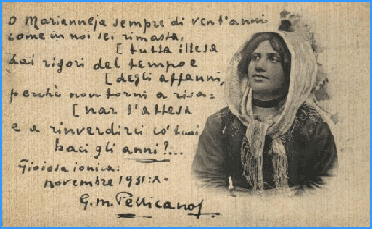 O Mariannefa sempre di vent'anni
come in noi sei rimasta,
[ tutta illesa
dai rigori del tempo e
[ degli affanni,
perchè non torni a risa=
[ nar l'attesa
e a rinverdirci co' tuoi
baci gli anni?...
Gioiosa ionica:
novembre 1951:
G. M. Pellicano